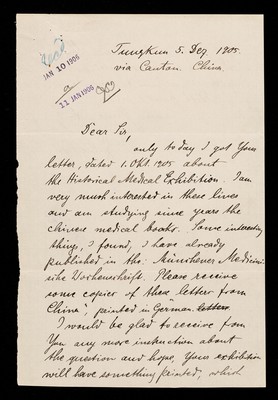 Tungkun 5. Dez. 1905.
via Canton. China
JAN 10 1906
11 JAN 1906
Dear Sir,
only to day I got Your
letter, dated 1. Okt. 1905 about
the Historical Medical Exhibition. I am
very much interested in these lines
and am studying since years the
chinese medical books. Some interesting
thing, I found, I have already
published in the: Münchener Medicini-
sche Wochenschrift. Please receive
some copies of these "letter from
China", printed in German letters.
I would be glad to receive from
You any more instruction about
the question and hope, Your exhibition
will have something printed, which